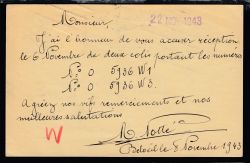 Monsieur,
22 NOV 1943
J'ai l'honneur de vous accuser réception
le 6 Novembre de deux colis portant les numéros
N° 0 5936 W1
N° 0 5936 W3.
Agréez nos vifs remerciements et nos
meilleures salutations
W
Beloeil 8 Novembre 1943